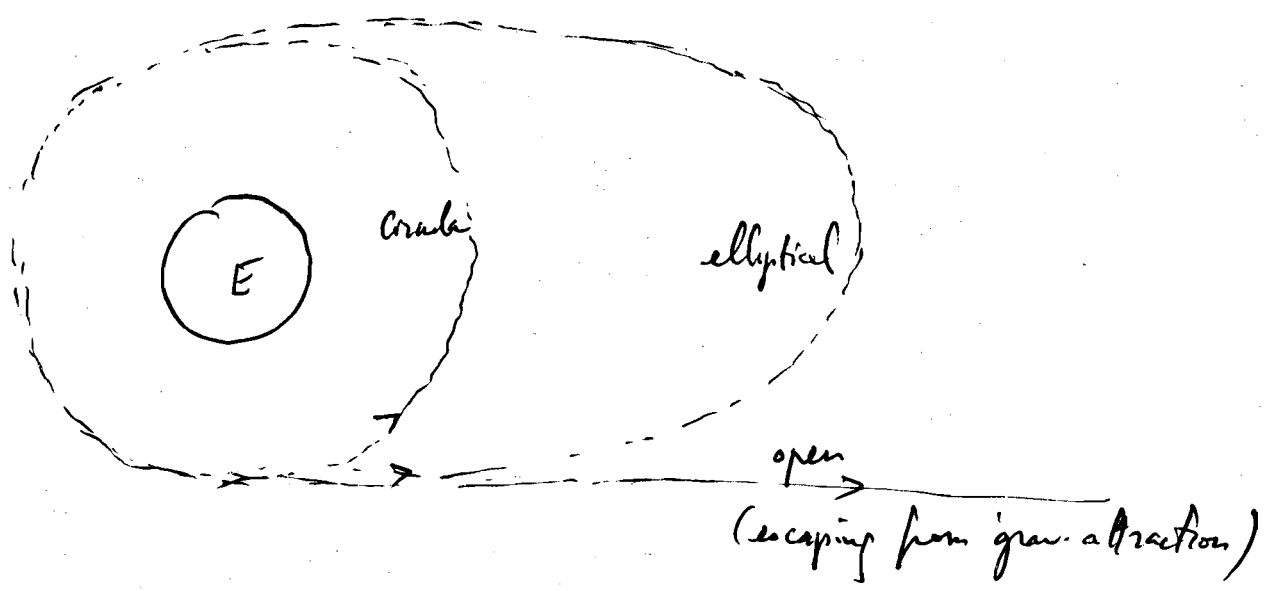 circular
elliptical
E
open
(escaping from grav. attraction)